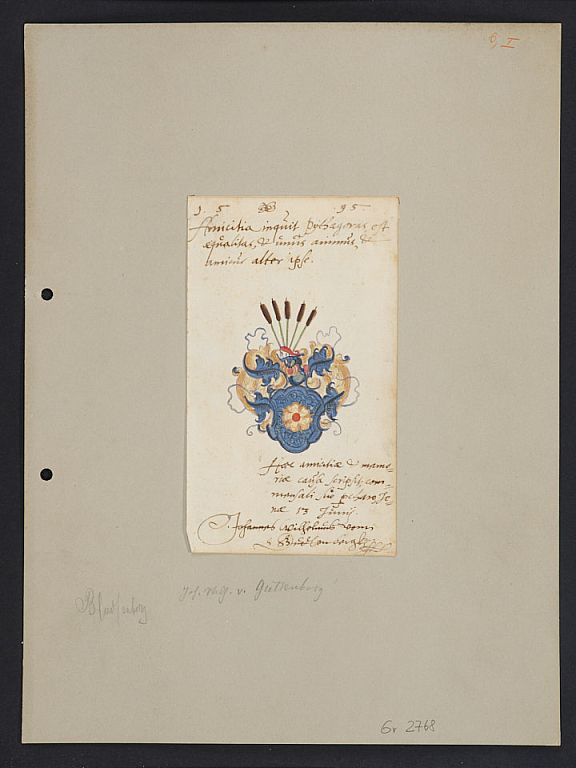 6, I
1 5 95
Amicitia inquit Pythagoras est
æqualitas, & unus animus, &
amicus alter ipse.
Hæc amicitiæ & memo-
riæ causa scripsit com-
mensali suo
næ 13 Junij.
Johannes Wilhelmus vom
Joh. Wilh. v. Guttenberg
Gr 2768